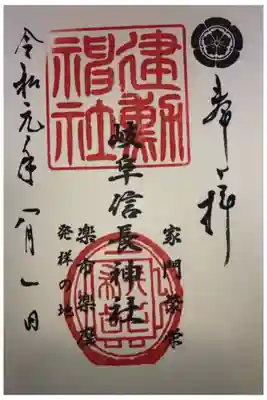 奉拝
家門繁栄
岐阜信長神社
建勲
神社
楽市楽座
発祥の地
令和元年八月一日